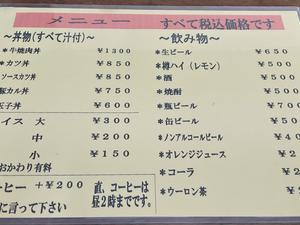 メニュー　すべて税込価格です
～丼物(すべて汁付)～
*牛焼肉丼 ¥1300
*カツ丼 ¥850
ソースカツ丼 ¥850
豚カル丼 ¥750
玉子丼 ¥600
イス 大 ¥300
中 ¥200
小 ¥150
おかわり有料
ーヒー ＋¥200
に言って下さい
直、コーヒーは
昼2時までです。
～飲み物～
*生ビール ¥650
*樽ハイ（レモン） ¥500
*酒 ¥500
*焼酎 ¥500
*瓶ビール ¥700
*缶ビール ¥500
*ノンアルコールビール ¥400
*オレンジジュース ¥2
*コーラ ¥
*ウーロン茶 ¥2